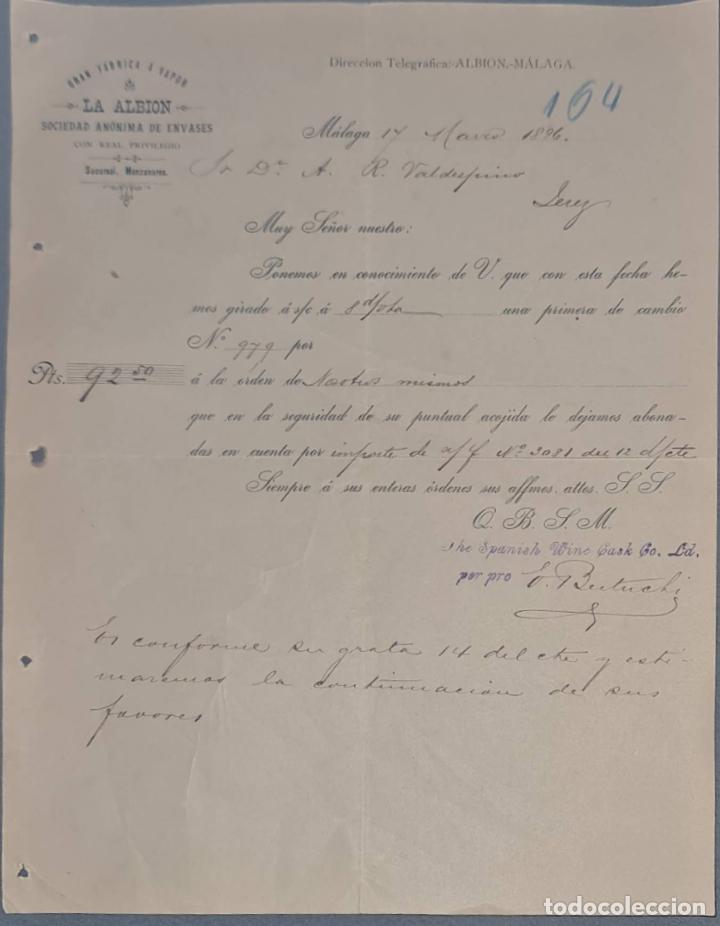 GRAN FÁBRICA Á VAPOR
LA ALBION
SOCIEDAD ANÓNIMA DE ENVASES
CON REAL PRIVILEGIO
Sucursal, Manzanares.
Direccion Telegráfica:-ALBION,-MÁLAGA.
164
Málaga 17 Marzo 1896.
Sr Dn A. R. Valdespino
Jerez
Muy Señor nuestro:
Ponemos en conocimiento de V. que con esta fecha he-
mos girado á s/c á 8 d/vta una primera de cambio
N.º 979 por
Pts. 92 50
á la orden de Nosotros mismos
que en la seguridad de su puntual acojida le dejamos abona-
das en cuenta por importe de n/f Nº 2081 del 12 d/cte
Siempre á sus enteras órdenes sus affmos. attos. S. S.
Q. B. S. M.
The Spanish Wine Cask Co. Ld.
per pro E. Bertuchi
Es conforme su grata 14 del cte y esti-
maremos la continuacion de sus
favores
todocoleccion.net